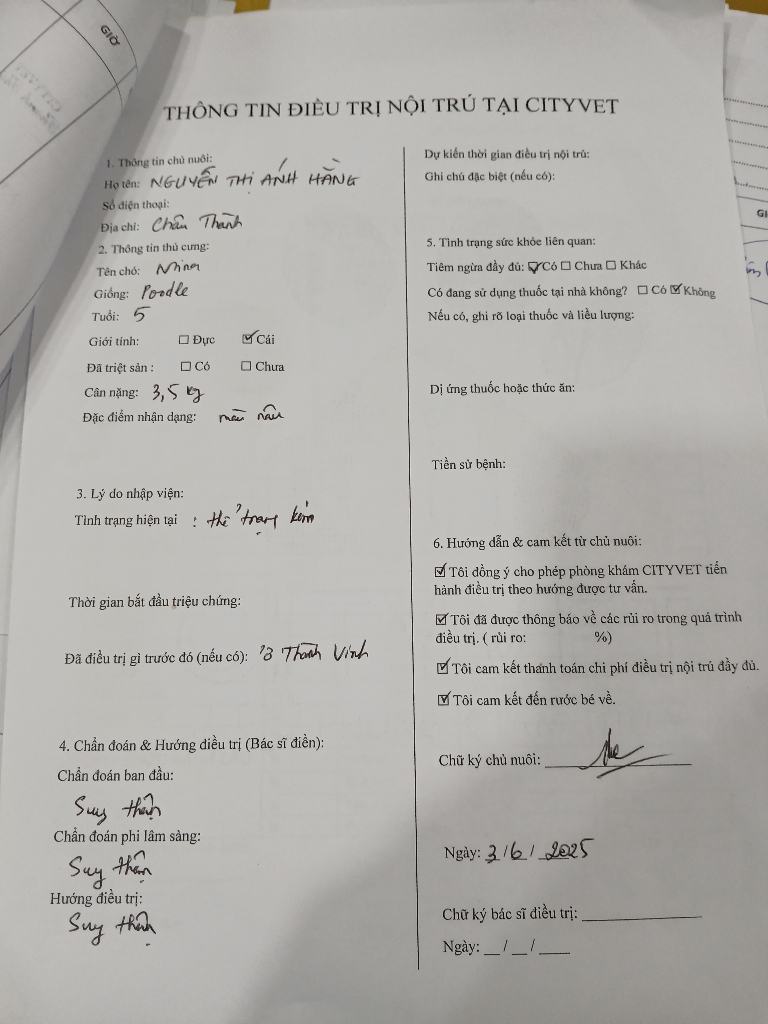 GIỜ
THÔNG TIN ĐIỀU TRỊ NỘI TRÚ TẠI CITYVET
1. Thông tin chủ nuôi:
Họ tên: NGUYỄN THỊ ÁNH HẰNG
Số điện thoại:
Địa chỉ: Châu Thành
2. Thông tin thú cưng:
Tên chó: Nina
Giống: Poodle
Tuổi: 5
Giới tính: ☐ Đực ☑ Cái
Đã triệt sản : ☐ Có ☐ Chưa
Cân nặng: 3,5 kg
Đặc điểm nhận dạng: màu nâu
3. Lý do nhập viện:
Tình trạng hiện tại : thể trạng kém
Thời gian bắt đầu triệu chứng:
Đã điều trị gì trước đó (nếu có): Thành Vinh
4. Chẩn đoán & Hướng điều trị (Bác sĩ điền):
Chẩn đoán ban đầu:
Suy thận
Chẩn đoán phi lâm sàng:
Suy thận
Hướng điều trị:
Suy thận
Dự kiến thời gian điều trị nội trú:
Ghi chú đặc biệt (nếu có):
5. Tình trạng sức khỏe liên quan:
Tiêm ngừa đầy đủ: ☑ Có ☐ Chưa ☐ Khác
Có đang sử dụng thuốc tại nhà không? ☐ Có ☑ Không
Nếu có, ghi rõ loại thuốc và liều lượng:
Dị ứng thuốc hoặc thức ăn:
Tiền sử bệnh:
6. Hướng dẫn & cam kết từ chủ nuôi:
☑ Tôi đồng ý cho phép phòng khám CITYVET tiến
hành điều trị theo hướng được tư vấn.
☑ Tôi đã được thông báo về các rủi ro trong quá trình
điều trị. ( rủi ro: %)
☑ Tôi cam kết thanh toán chi phí điều trị nội trú đầy đủ.
☑ Tôi cam kết đến rước bé về.
Chữ ký chủ nuôi:
Ngày: 3/6/2025
Chữ ký bác sĩ điều trị: ____
Ngày: __/__/____